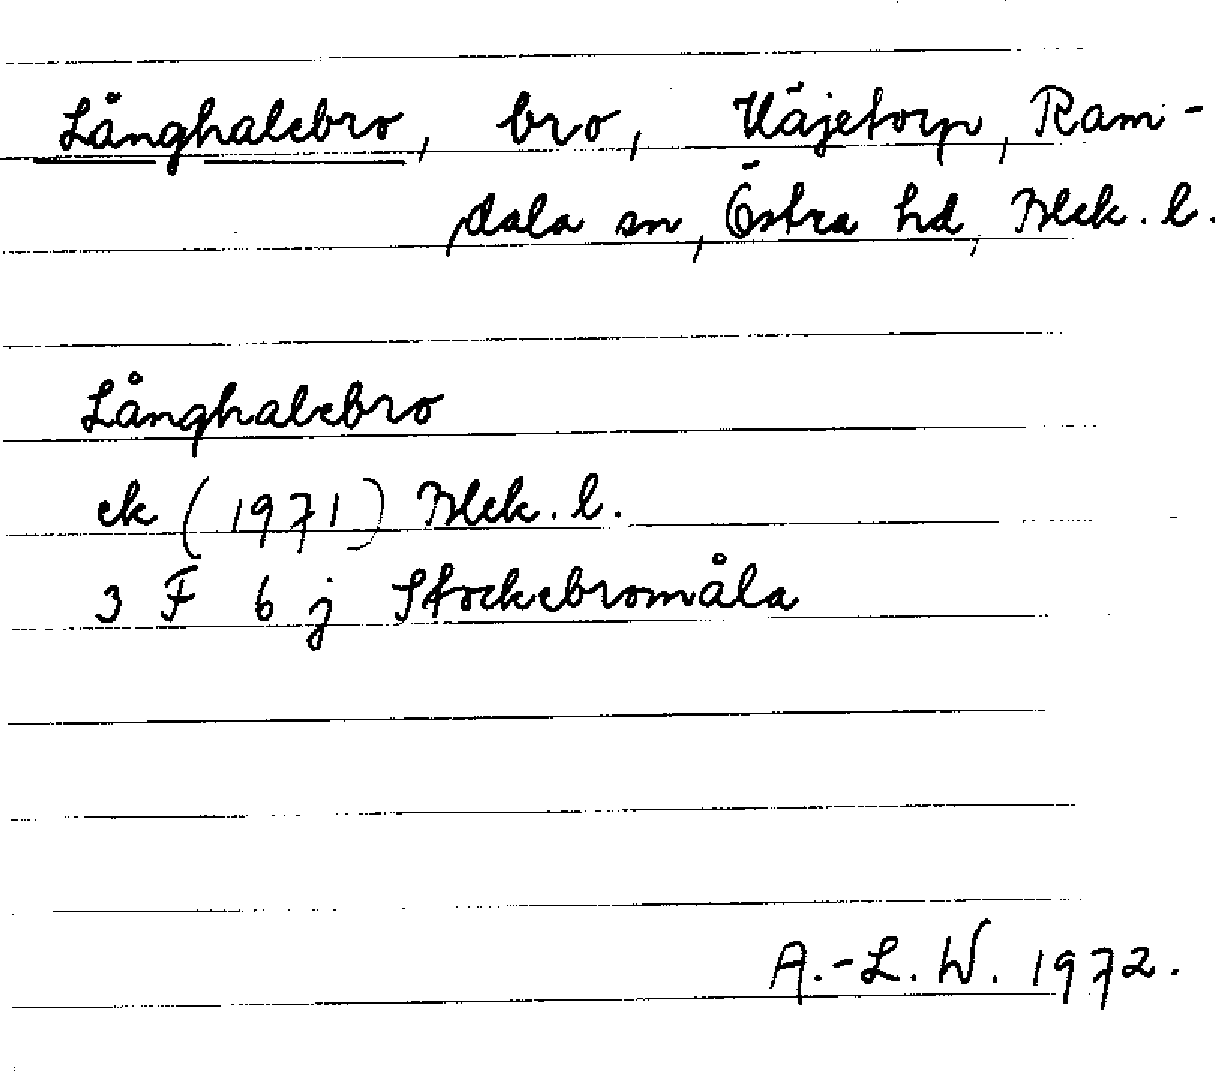 Långhalebro, bro, Väjetorp, Ram-
dala sn, Östra hd, Blek. l.
Långhalebro
ek (1971) Blek. l.
3 F 6 j Stockebromåla
A.-L. W. 1972.